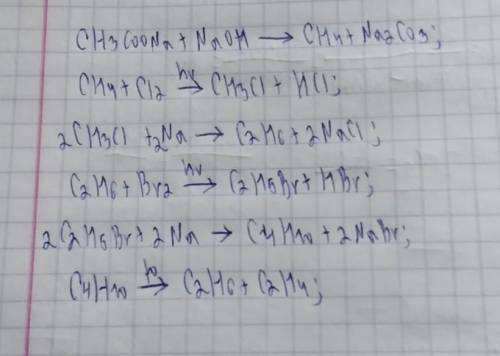 CH3COONa + NaOH → CH4 + Na2CO3;
CH4 + Cl2 hν→ CH3Cl + HCl;
2CH3Cl + 2Na → C2H6 + 2NaCl;
C2H6 + Br2 hν→ C2H5Br + HBr;
2C2H5Br + 2Na → C4H10 + 2NaBr;
C4H10 → C2H6 + C2H4;